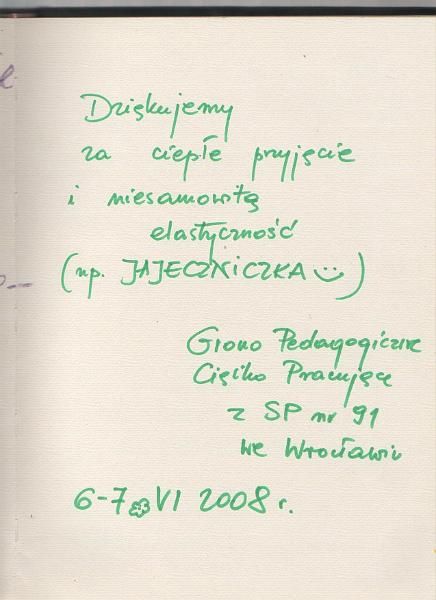 Dziękujemy
za ciepłe przyjęcie
i niesamowitą
elastyczność
(np. JAJECZNICZKA)
Grono Pedagogiczne
Ciężko Pracujące
z SP nr 91
we Wrocławiu
6-7 VI 2008 r.